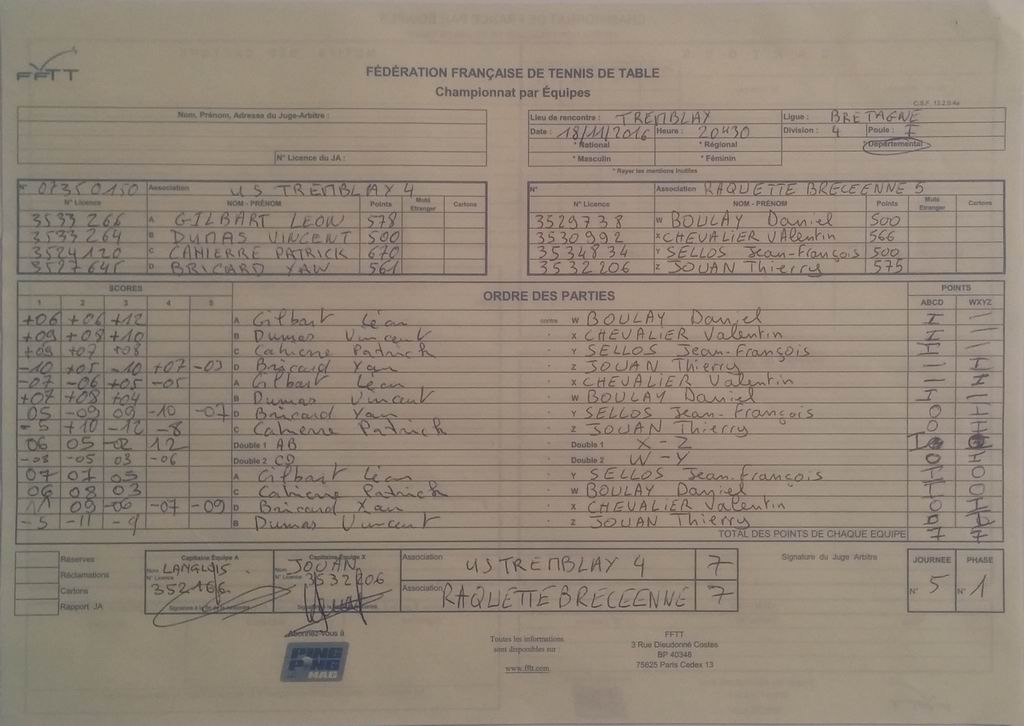 FFTT
FÉDÉRATION FRANÇAISE DE TENNIS DE TABLE
Championnat par Équipes
C.S.F. 13.2.0-4a
Nom, Prénom, Adresse du Juge-Arbitre :
N° Licence du JA :
Lieu de rencontre : TREMBLAY Ligue : BRETAGNE
Date : 18/11/2016 Heure : 20H30 Division : 4 Poule : 7
* National * Régional * Départemental
* Masculin * Féminin
* Rayer les mentions inutiles
N° 07350150 Association US TREMBLAY 4
N° Licence NOM - PRÉNOM Points Muté Etranger Cartons
3533 266 A GILBART LEON 578
3533 264 B DUMAS VINCENT 500
3524120 C CAHIERRE PATRICK 670
3527645 D BRICARD YAN 561
N° Association RAQUETTE BRECEENNE 5
N° Licence NOM - PRÉNOM Points Muté Etranger Cartons
3529738 W BOULAY Daniel 500
3530992 X CHEVALIER VAlentin 566
3534834 Y SELLOS Jean-François 500
3532206 Z JOUAN Thierry 575
SCORES ORDRE DES PARTIES POINTS
1 2 3 4 5 ABCD WXYZ
+06 +06 +12 A Gilbart Léon contre W BOULAY Daniel
+09 +08 +10 B Dumas Vincent X CHEVALIER Valentin
+09 +07 +08 C Cahierre Patrick Y SELLOS Jean-François
-10 +05 -10 +07 -03 D Bricard Yan Z JOUAN Thierry
-07 -06 +05 -05 A Gilbart Léon X CHEVALIER Valentin
+07 +08 +04 B Dumas Vincent W BOULAY Daniel
05 -09 09 -10 -07 D Bricard Yan Y SELLOS Jean-François
-5 +10 -12 -8 C Cahierre Patrick Z JOUAN Thierry
06 05 -02 12 Double 1 AB Double 1 X-Z
-03 -05 03 -06 Double 2 CD Double 2 W-Y
07 07 05 A Gilbart Léon Y SELLOS Jean-François
06 08 03 C Cahierre Patrick W BOULAY Daniel
11 09 -06 -07 -09 D Bricard Yan X CHEVALIER Valentin
-5 -11 -9 B Dumas Vincent Z JOUAN Thierry
TOTAL DES POINTS DE CHAQUE EQUIPE 7 7
Réserves
Réclamations
Cartons
Rapport JA
Capitaine Équipe A
Nom LANGLOIS
N° Licence
Capitaine Équipe X
Nom JOUAN
N° Licence 3532206
Association US TREMBLAY 4 7
Association RAQUETTE BRECEENNE 7
Signature du Juge Arbitre
JOURNEE PHASE
N° 5 N° 1
Abonnez-vous à
PING PONG MAG
Toutes les informations
sont disponibles sur :
www.fftt.com
FFTT
3 Rue Dieudonné Costes
BP 40348
75625 Paris Cedex 13